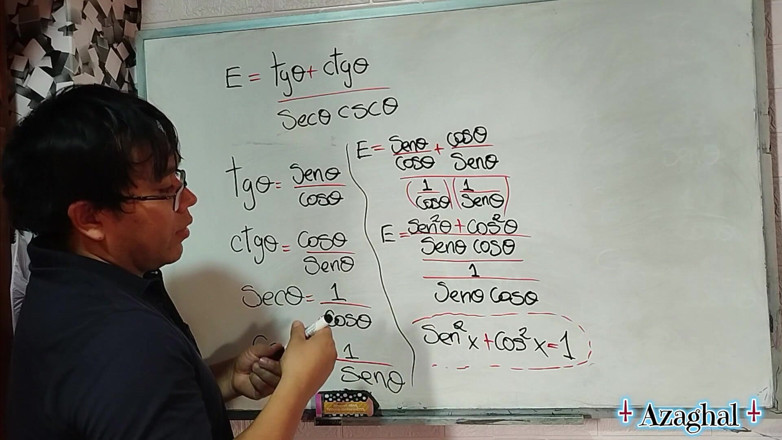 E = tgθ + ctgθ
secθ cscθ
tgθ = senθ
cosθ
ctgθ = cosθ
senθ
secθ = 1
cosθ
1
senθ
E = senθ + cosθ
cosθ senθ
(1) (1)
cosθ senθ
E = sen²θ + cos²θ
senθ cosθ
1
senθ cosθ
sen²x + cos²x = 1
Azaghal